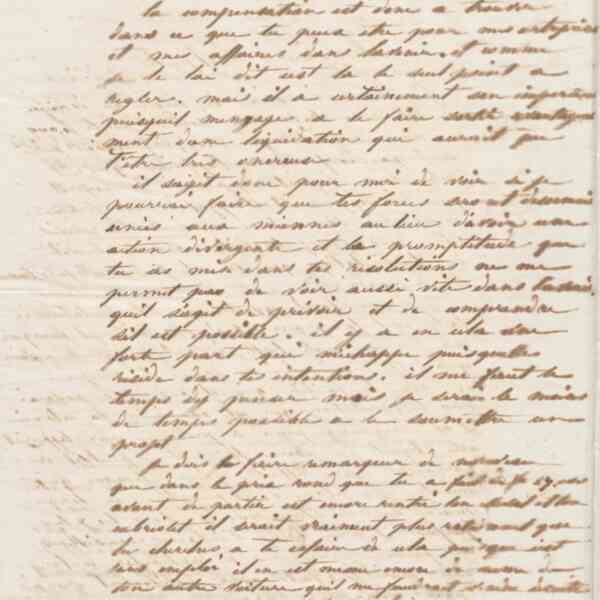 la compensation est donc a trouver
dans ce que tu peux etre pour mes entreprises
et mes affaires dans lavenir, et comme
je te lai dit cest la le seul point a
regler. mais il a certainement son importance
puisquil mengage a te faire sortir avantageuse
ment dune liquidation qui aurait pu
t'etre tres onereuse
il sagit donc pour moi de voir si je
pourrai faire que tes forces seront desormais
unies aux miennes au lieu davoir une
action divergente et la promptitude que
tu as mise dans tes resolutions ne me
permet pas de voir aussi vite dans lavenir.
quil sagit de prévoir et de comprendre
sil est possible. il y a en cela une
forte part qui mechappe puisquelle
reside dans tes intentions. il me faut le
temps dy penser mais je serai le moins
de temps possible a te soumettre un
projet
je dois te faire remarquer de nouveau
que dans le prix rond que tu a fixé de fr
avant de partir est encore rentré ton et ton
cabriolet il serait vraiment plus rationnel que
tu cherches a te defaire de cela puisque cest
sans emploi il en est meme encore de meme de
ton autre voiture quil me faudrait